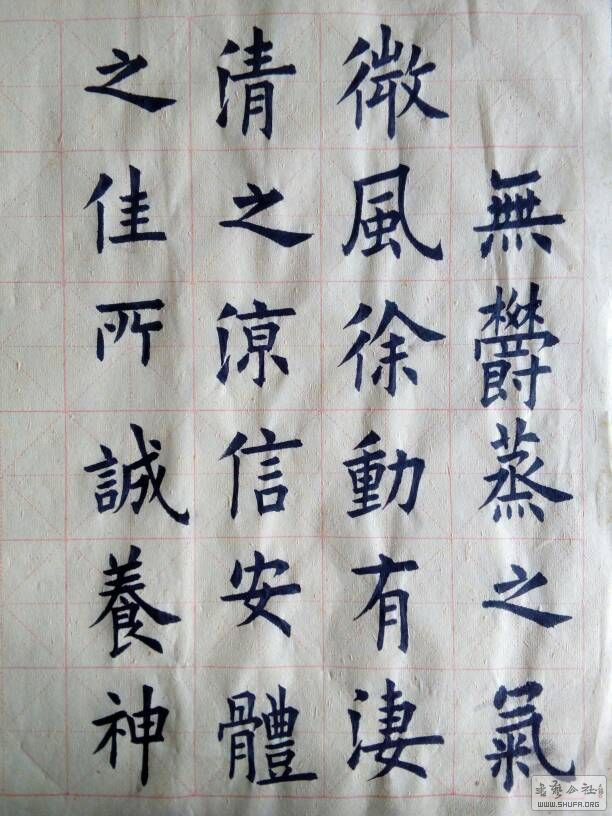 無鬱蒸之氣
微風徐動有淒
清之涼信安體
之佳所誠養神
WWW.SHUFA.ORG